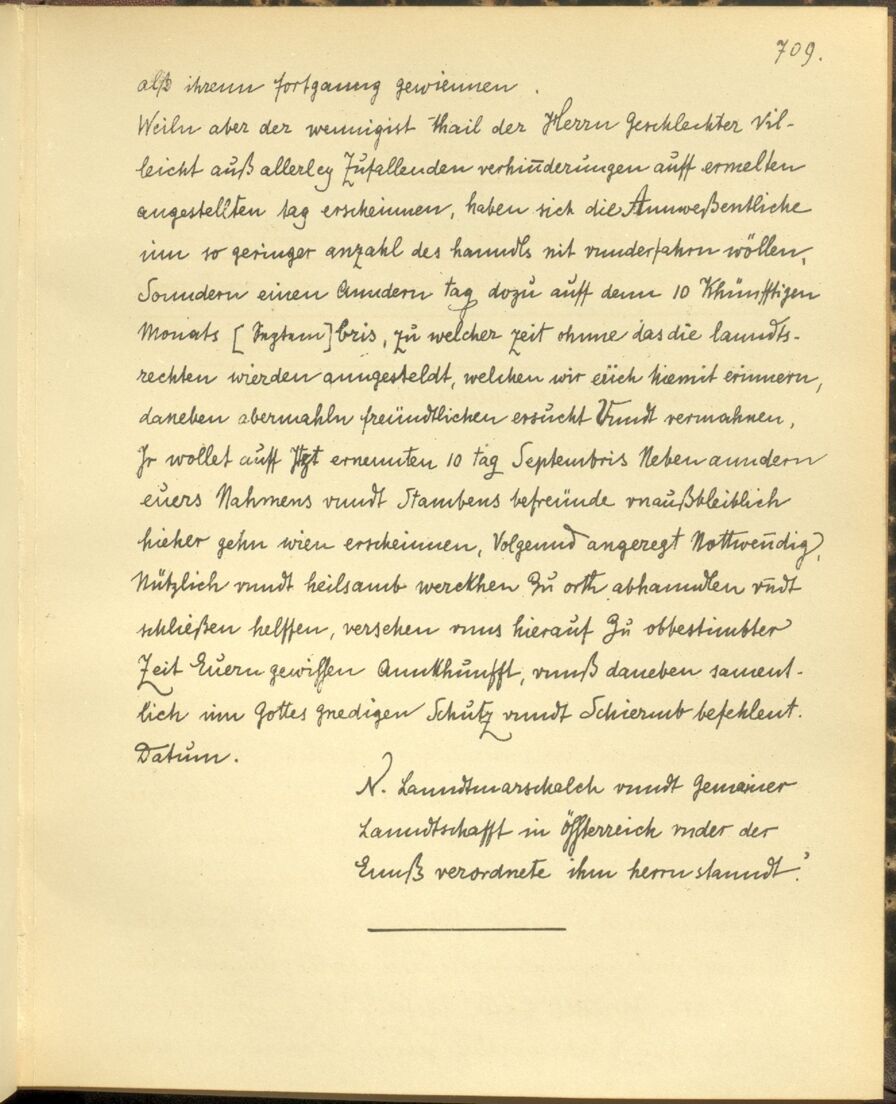 709.
alß ihrenn fortganng gewiennen.
Weiln aber der wennigist thail der Herrn Geschlechter vil-
leicht auß allerley Zufallenden verhinderungen auff ermelten
angestellten tag erscheinnen, haben sich die Annweßentliche
inn so geringer anzahl des hanndls nit vnnderfahrn wöllen,
Sonndern einen Anndern tag dozu auff denn 10 Khünfftigen
Monats [Septem]bris, zu welcher zeit ohnne das die lanndts-
rechten wierden anngesteldt, welchen wir eüch hiemit erinnern,
daneben abermahln freündtlichen ersucht Vnndt vermahnen,
Ir wollet auff Itzt ernennten 10 tag Septembris Neben anndern
euers Nahmens vnndt Stambens befreünde vnaußbleiblich
hieher gehn wien erscheinnen, Volgennd angeregt Nottwendig,
Nützlich vnndt heilsamb werckhen Zu orth abhanndlen vndt
schließen helffen, versehen vnns hierauf Zu obbestimbter
Zeit Euern gewissen Annkhunfft, vnnß daneben sament-
lich inn Gottes gnedigen Schutz vnndt Schiermb befehlent.
Datum.
N. Lanndtmarschalch vnndt Gemainer
Lanndtschafft in Össterreich vnder der
Ennß verordnete ihm herrn stanndt.